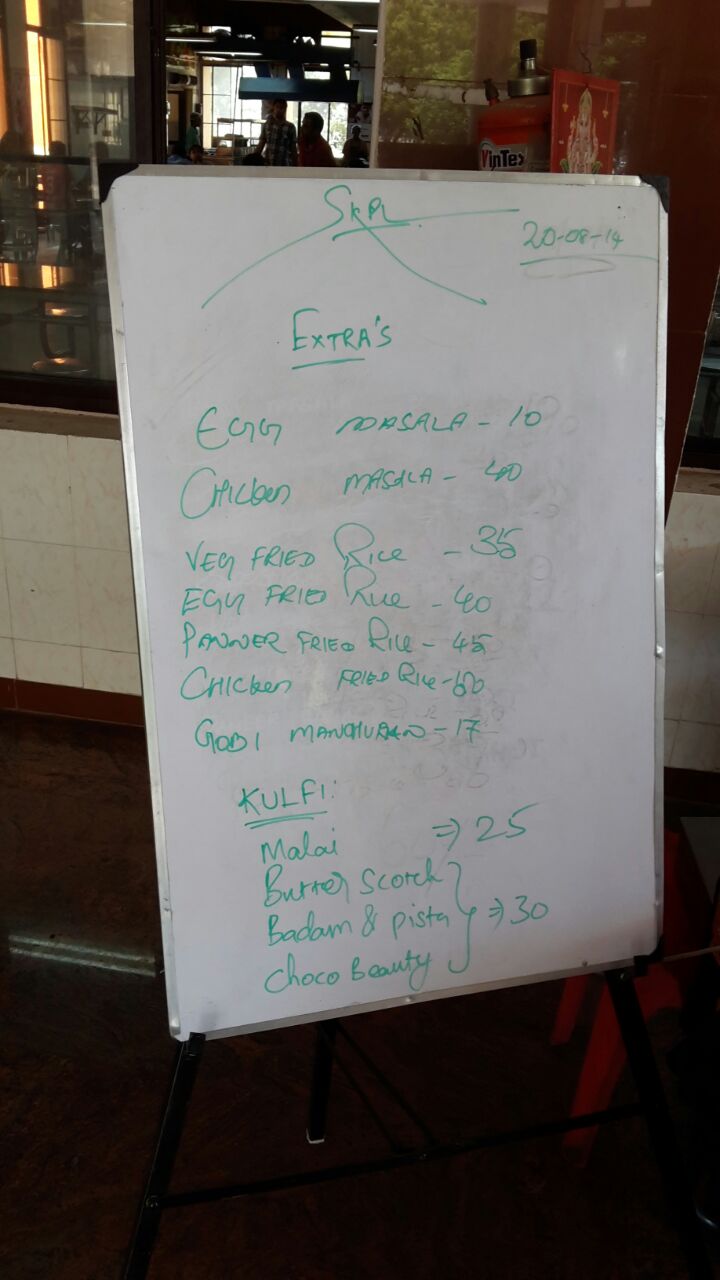 VinTex
SkPr
20-08-14
EXTRA'S
EGG MASALA - 10
CHICken MASALA - 40
VEG FRIED Rice - 35
EGG FRIED Rice - 40
PANNER FRIED Rice - 45
CHICken FRIED Rice - 60
GOBI MANCHURIAN - 17
KULFI:
Malai ⇒ 25
Butter Scotch
Badam & pista } ⇒ 30
Choco Beauty